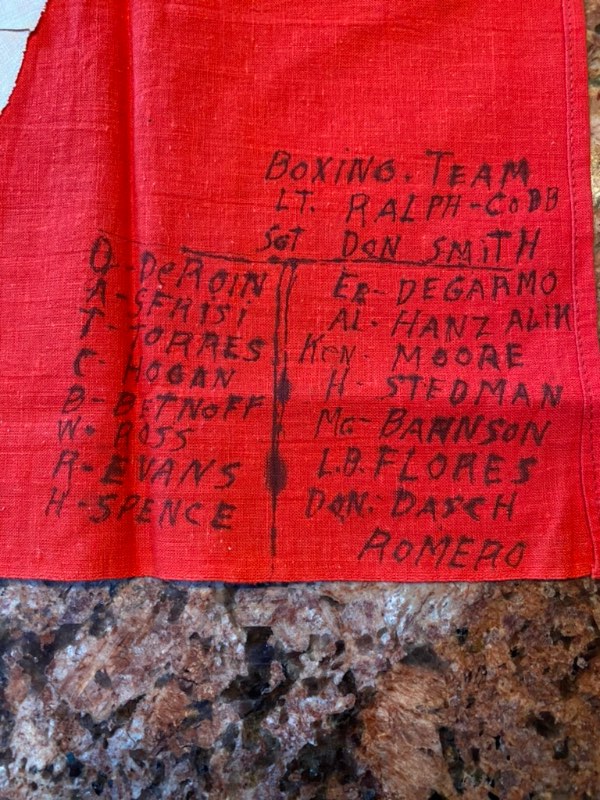 BOXING. TEAM
LT. RALPH-COBB
SGT DON SMITH
O-DEROIN
A-SERISI
T-TORRES
C-HOGAN
B-BETNOFF
W-ROSS
R-EVANS
H-SPENCE
ER-DEGARMO
AL-HANZALIK
KEN-MOORE
H-STEDMAN
MC-BARNSON
L.B.FLORES
DON.DASCH
ROMERO